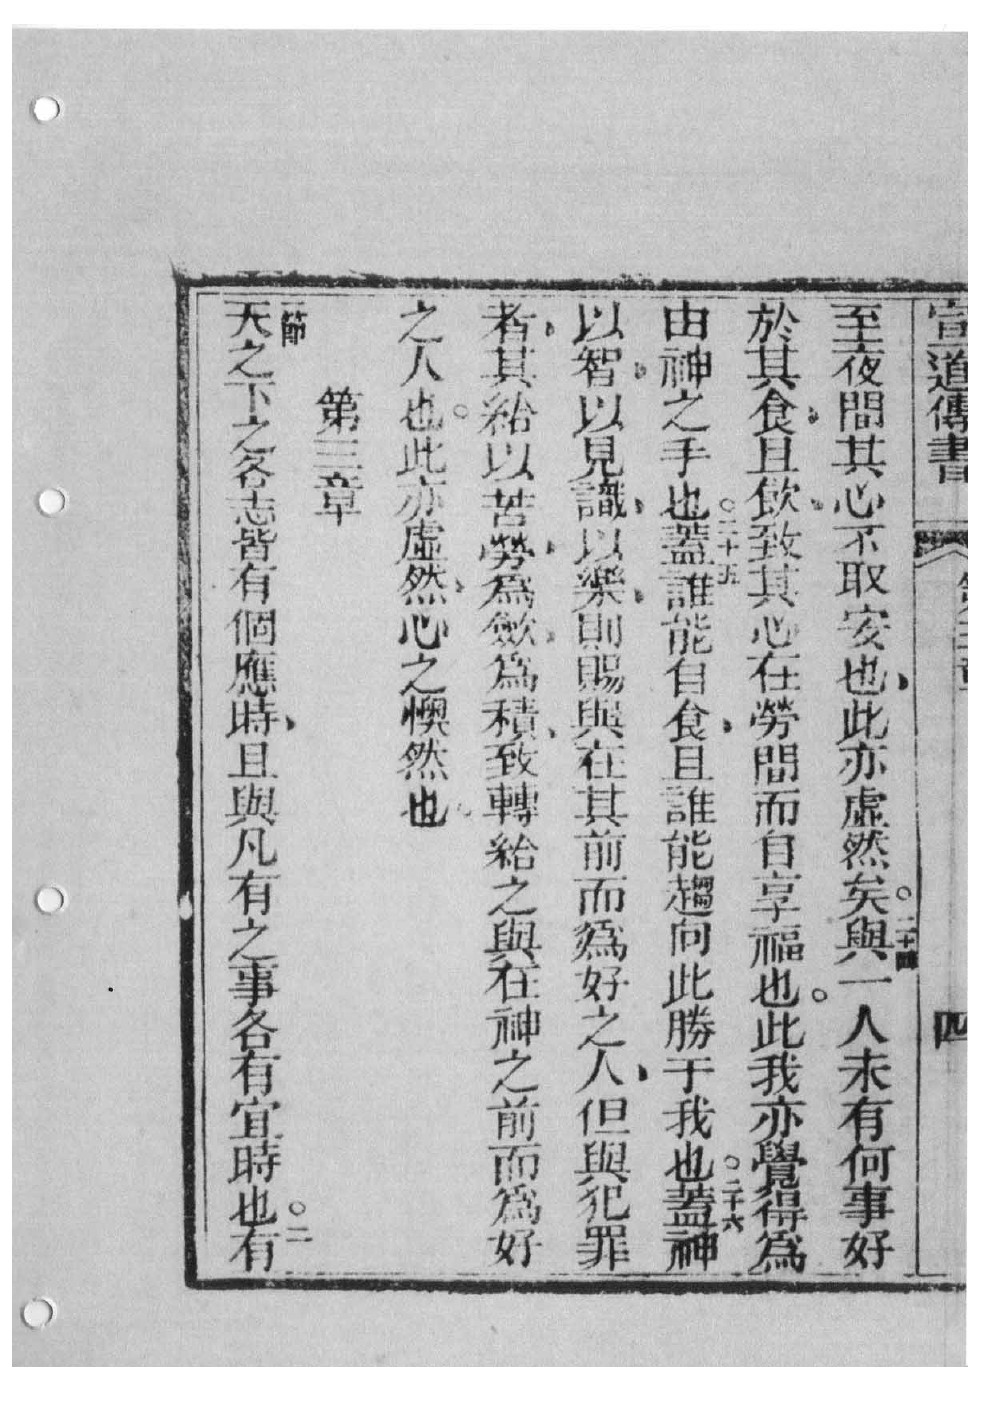 宣道傳書 第三章 四
至夜間其心不取安也、此亦虛然矣。二十四與一人未有何事好
於其食、且飲、致其心在勞間而自享福也。此我亦覺得爲
由神之手也。二十五蓋誰能自食、且誰能趨向此勝于我也。二十六蓋神
以智、以見識、以樂、則賜與在其前而爲好之人、但與犯罪
者、其給以苦勞、爲斂、爲積、致轉給之與在神之前而爲好
之人也。此亦虛然、心之懊然也。
第三章
一節天之下之各志皆有個應時、且與凡有之事各有宜時也。二有